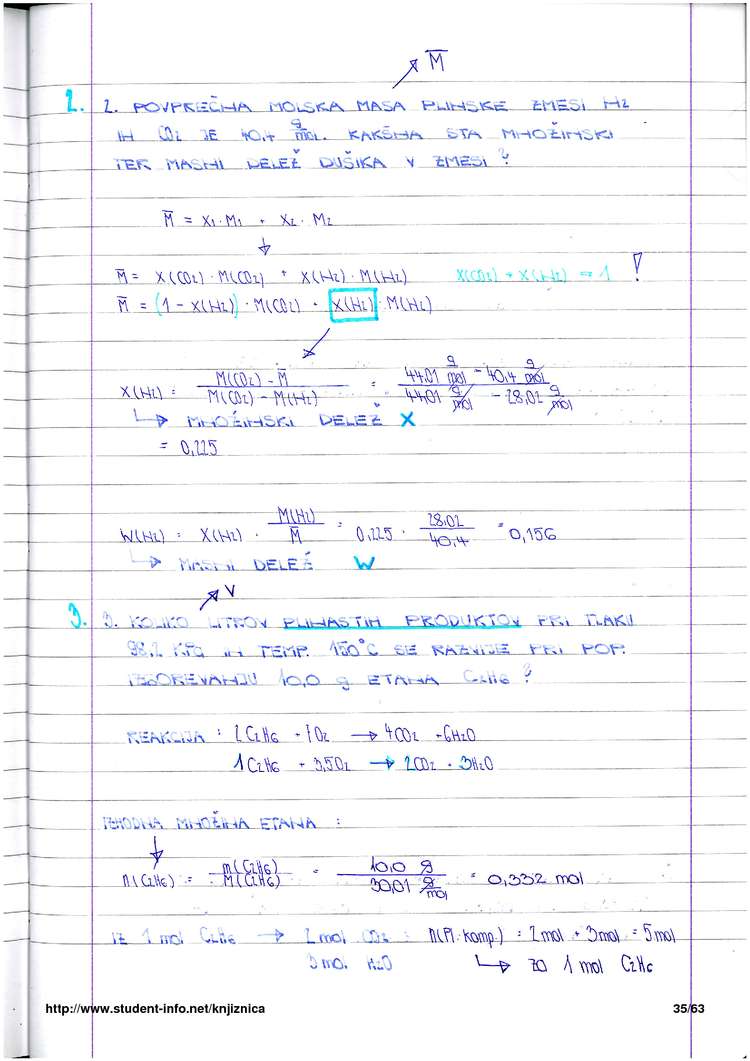 M̅
2. 2. POVPREČNA MOLSKA MASA PLINSKE ZMESI N2
IN CO2 JE 40,4 g/mol. KAKŠNA STA MNOŽINSKI
TER MASNI DELEŽ DUŠIKA V ZMESI?
M̅ = X1·M1 + X2·M2
M̅ = X(CO2)·M(CO2) + X(N2)·M(N2) X(CO2) + X(N2) = 1 !
M̅ = (1 - X(N2))·M(CO2) + X(N2)·M(N2)
X(N2) = M(CO2) - M̅ / M(CO2) - M(N2) = 44,01 g/mol - 40,4 g/mol / 44,01 g/mol - 28,02 g/mol
↳ MNOŽINSKI DELEŽ X
= 0,225
W(N2) = X(N2) · M(N2) / M̅ = 0,225 · 28,02 / 40,4 = 0,156
↳ MASNI DELEŽ W
V
3. 3. KOLIKO LITROV PLINASTIH PRODUKTOV PRI TLAKU
98,2 KPa IN TEMP. 150°C SE RAZVIJE PRI POP.
IZGOREVANJU 10,0 g ETANA C2H6?
REAKCIJA: 2C2H6 + 7O2 → 4CO2 + 6H2O
1C2H6 + 3,5O2 → 2CO2 + 3H2O
IZHODNA MNOŽINA ETANA:
n(C2H6) = m(C2H6) / M(C2H6) = 10,0 g / 30,01 g/mol = 0,332 mol
IZ 1 mol C2H6 → 2 mol CO2 : n(Pl. komp.) = 2mol + 3mol = 5mol
3 mol H2O ↳ ZA 1 mol C2H6
http://www.student-info.net/knjiznica 35/63